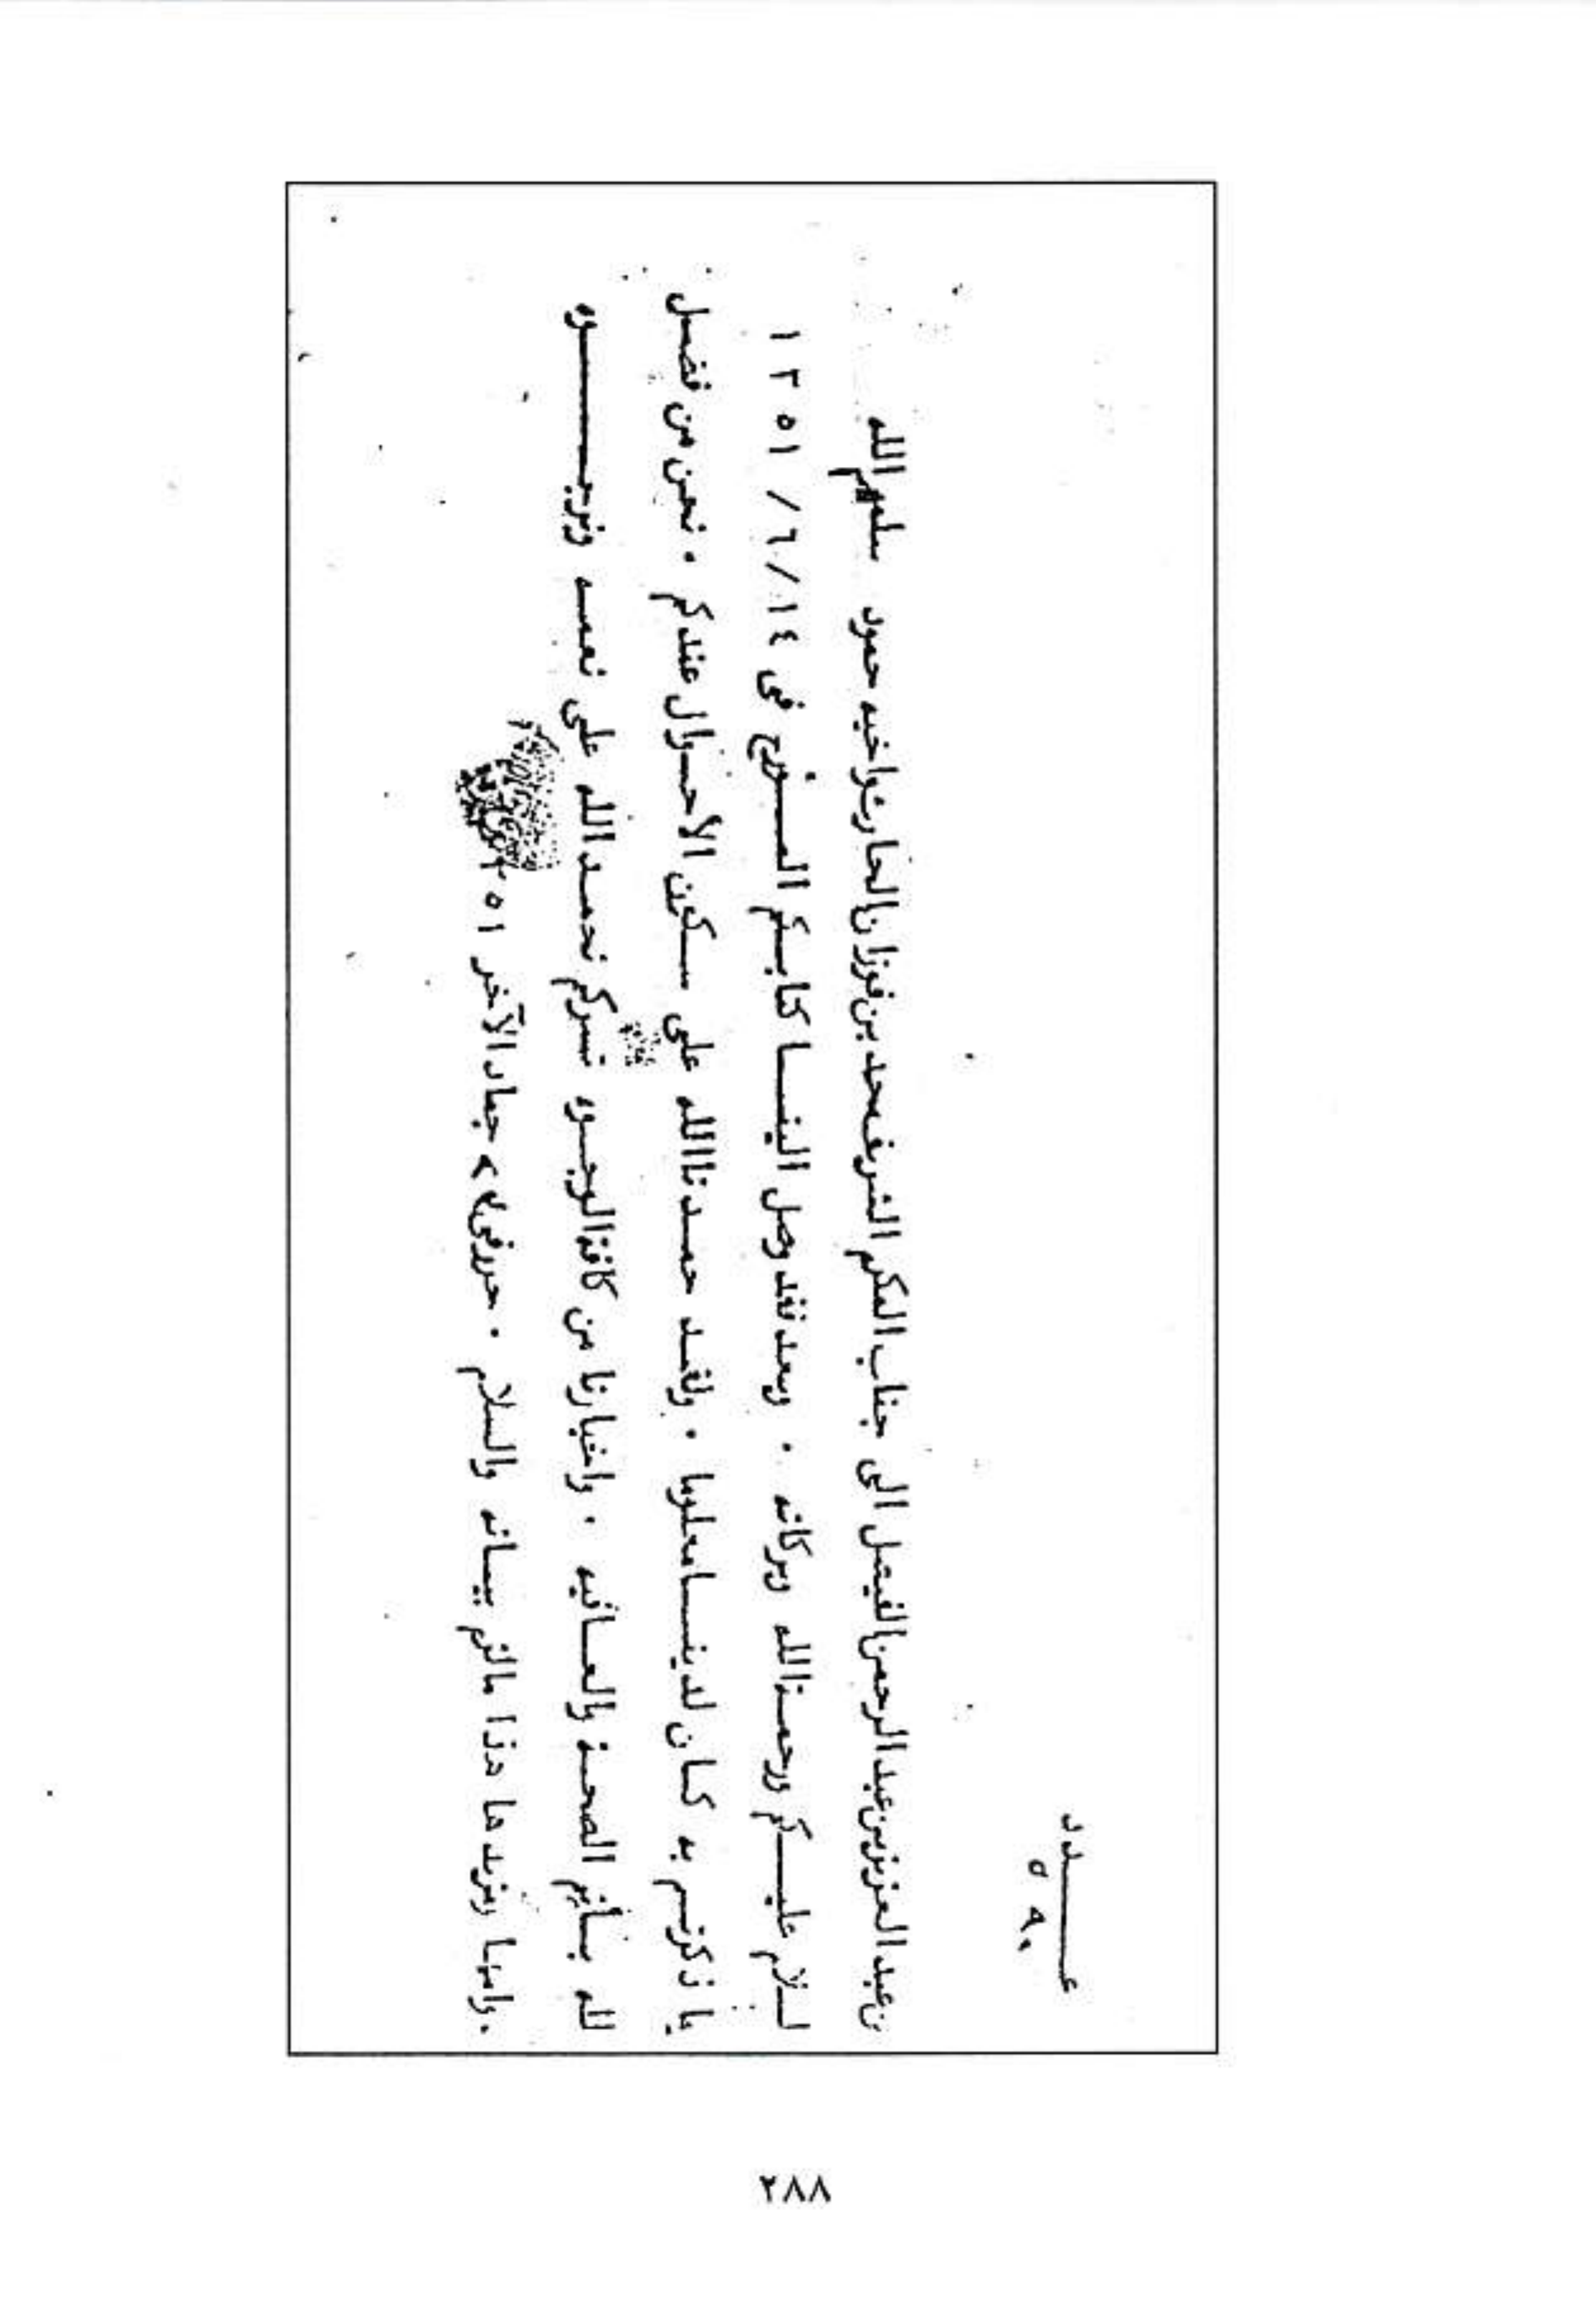 عـــــدد
٥٩٠
ن عبد العزيز بن عبد الرحمن الفيصل الى جناب المكرم الشريف محمد بن فوزان الحارث واخيه حمود سلمهم الله
لسلام عليــكم ورحمــة الله وبركاته . وبعد فقد وصل الينــا كتابــكم المــؤرخ في ١٤/ ٦/ ١٣٥١
با ذكرتــم به كــان لدينــا معلوما . ولقــد حمــدنا الله على سـكون الأحــوال عندكم . نحن من فضــل
لله بــأتم الصحــة والعــافيه . واخبارنا من كافة الوجــوه تسركم نحمــد الله على نعمــه ونرجــــــوه
. وامها ومزيدها هذا مالزم بيــانه والسلام . حرر في جماد الآخر ١٣٥١
٢٨٨